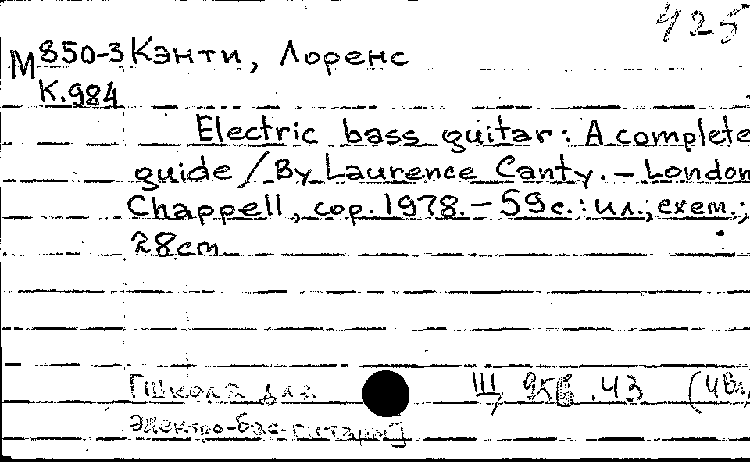 425
М 850-3 Кэнти, Лоренс
К.984
Electric bass guitar: A complete
guide / By Laurence Canty. – London
Chappell, cop. 1978. – 59 с.: ил.; схем.;
28cm
[Школа для
Щ .43 (4Вл,
электро-бас-гитары]